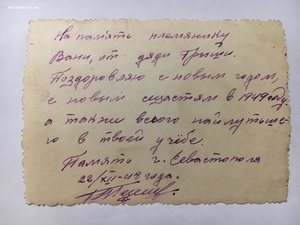 На память племянику
Вани, от дяди Гриши.
Поздоровляю с новым годом,
с новым щастям в 1949 году
а также всего найлутшьс-
го в твоей учёбе.
Память г. Севастополя
22/XII-48 года.